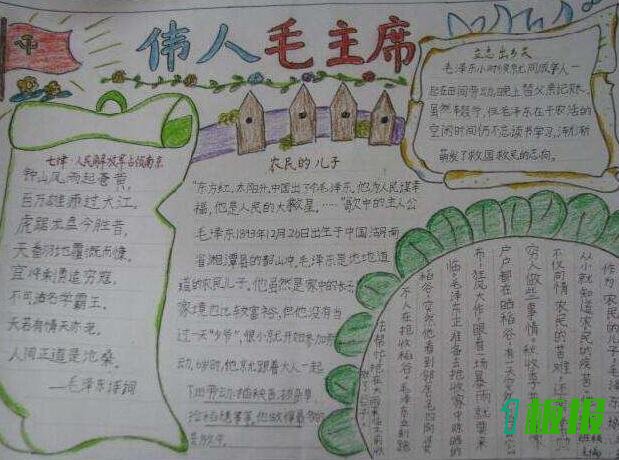 伟人毛主席
立志出乡关
毛泽东小时候就同成年人一
起在田间劳动,晚上替父亲记账。
虽然辛苦,但毛泽东在干农活的
空闲时间仍不忘读书学习,渐渐
萌发了救国救民的志向。
七律·人民解放军占领南京
钟山风雨起苍黄,
百万雄师过大江,
虎踞龙盘今胜昔,
天翻地覆慨而慷。
宜将剩勇追穷寇,
不可沽名学霸王。
天若有情天亦老,
人间正道是沧桑。
——毛泽东诗词
农民的儿子
“东方红,太阳升,中国出了个毛泽东。他为人民谋幸
福,他是人民的大救星。……”歌中的主人公
毛泽东1893年12月26日出生于中国湖南
省湘潭县的韶山冲。毛泽东是地地道
道的农民儿子。他虽然是家中的长子
家境也比较富裕,但他没有当
过一天“少爷”,很小就开始参加劳
动,6岁时,他就跟着大人一起
下田劳动:插秧苗、
拾稻穗
作为农民的儿子,毛泽东
从小就知道农民的疾苦
不仅同情农民的苦难,还
穷人做些事情。秋收季节
户户都在晒稻谷。有一天
布,狂风大作,眼看一场暴雨就要来
临。毛泽东正准备去抢收家中晾晒的
稻谷,突然他看到邻居毛四阿婆
个人在抢收稻谷。毛泽东立刻跑
板报